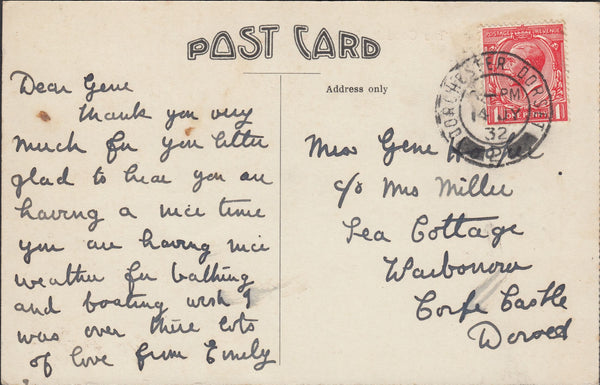 POST CARD
Address only
POSTAGE REVENUE
DORCHESTER DORSET
PM
14
32
2
1 ONE PENNY 1
Dear Gene
Thank you very
much for you letter
glad to hear you are
having a nice time
you are having nice
weather for bathing
and boating wish I
was over there lots
of love from Emily
Miss Gene
c/o Mrs Miller
Sea Cottage
Corfe Castle
Dorset